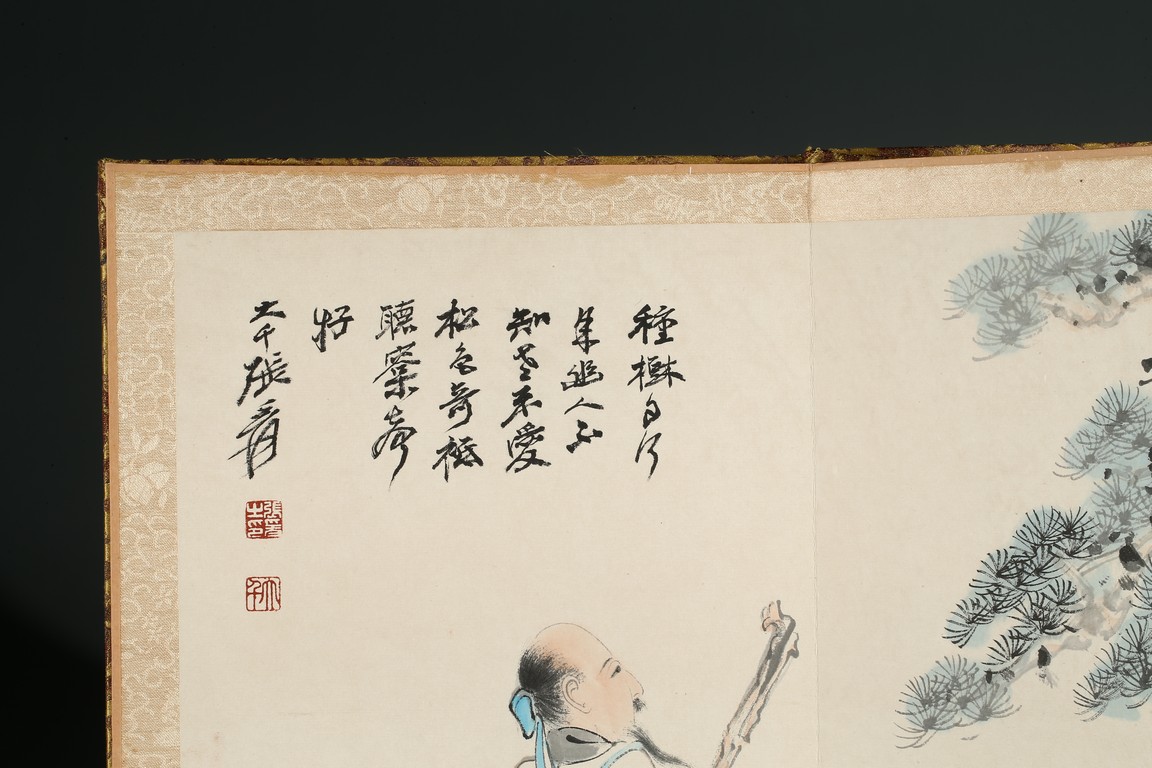 種樹自何
年幽人不
知老不愛
松色奇祗
聽㮤聲
好
大千張爰
張爰之印
大千